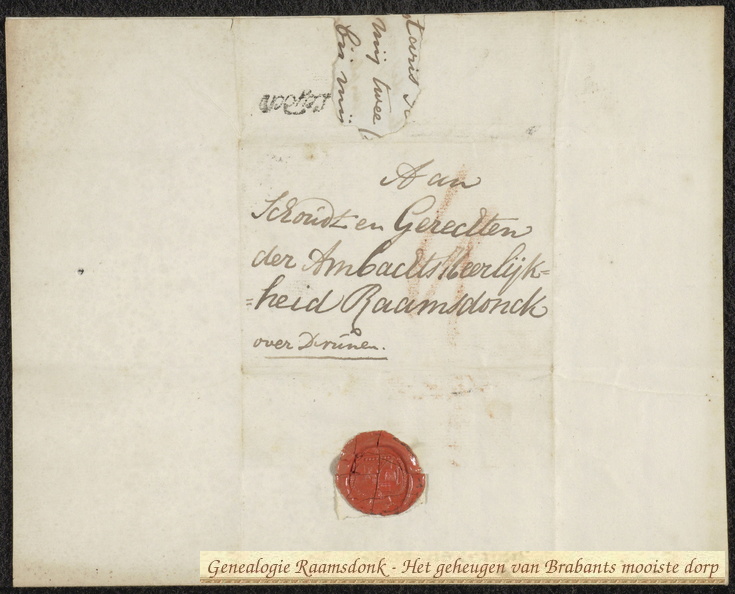 taris
mij twee
bij mij
Aan
Schoudt en Gerechten
der Ambachts Heerlijk=
=heid Raamsdonck
over Drúnen.
Genealogie Raamsdonk - Het geheugen van Brabants mooiste dorp